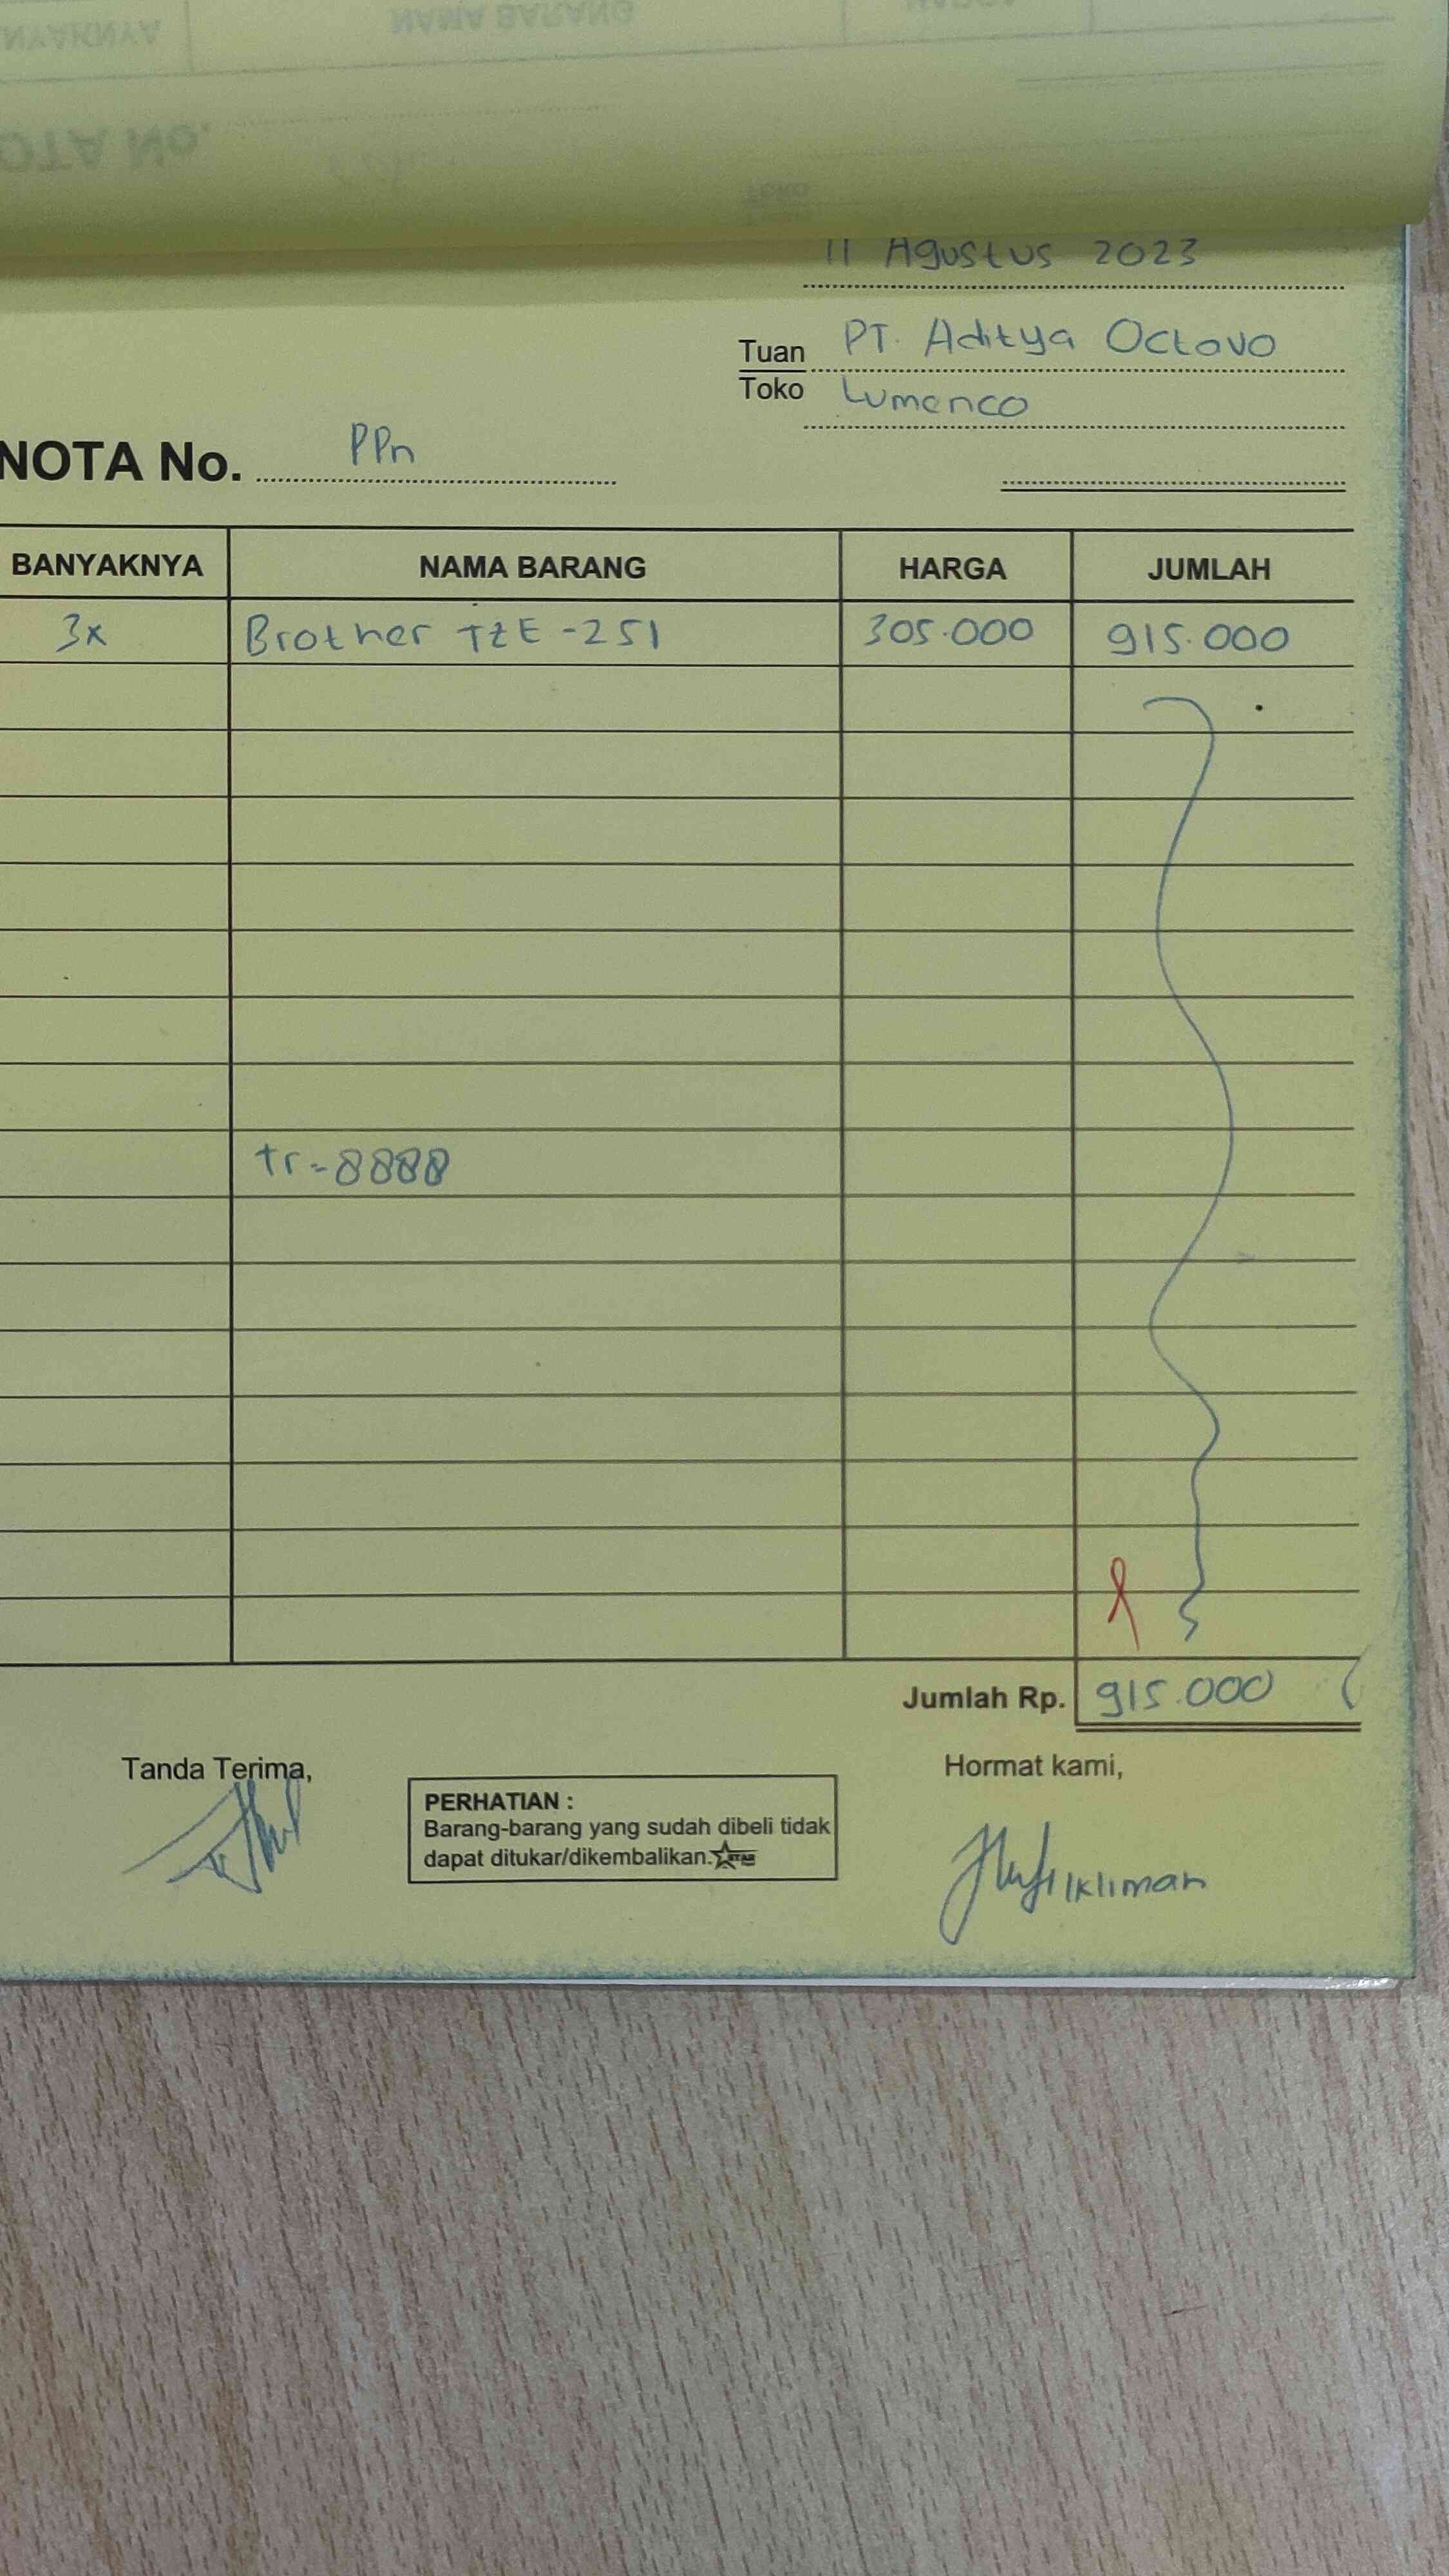 11 Agustus 2023
Tuan PT. Aditya Octavo
Toko Lumenco
NOTA No. PPn
BANYAKNYA NAMA BARANG HARGA JUMLAH
3x Brother TZE-251 305.000 915.000
tr-8888
Jumlah Rp. 915.000
Tanda Terima, Hormat kami,
PERHATIAN :
Barang-barang yang sudah dibeli tidak
dapat ditukar/dikembalikan.
Ikliman